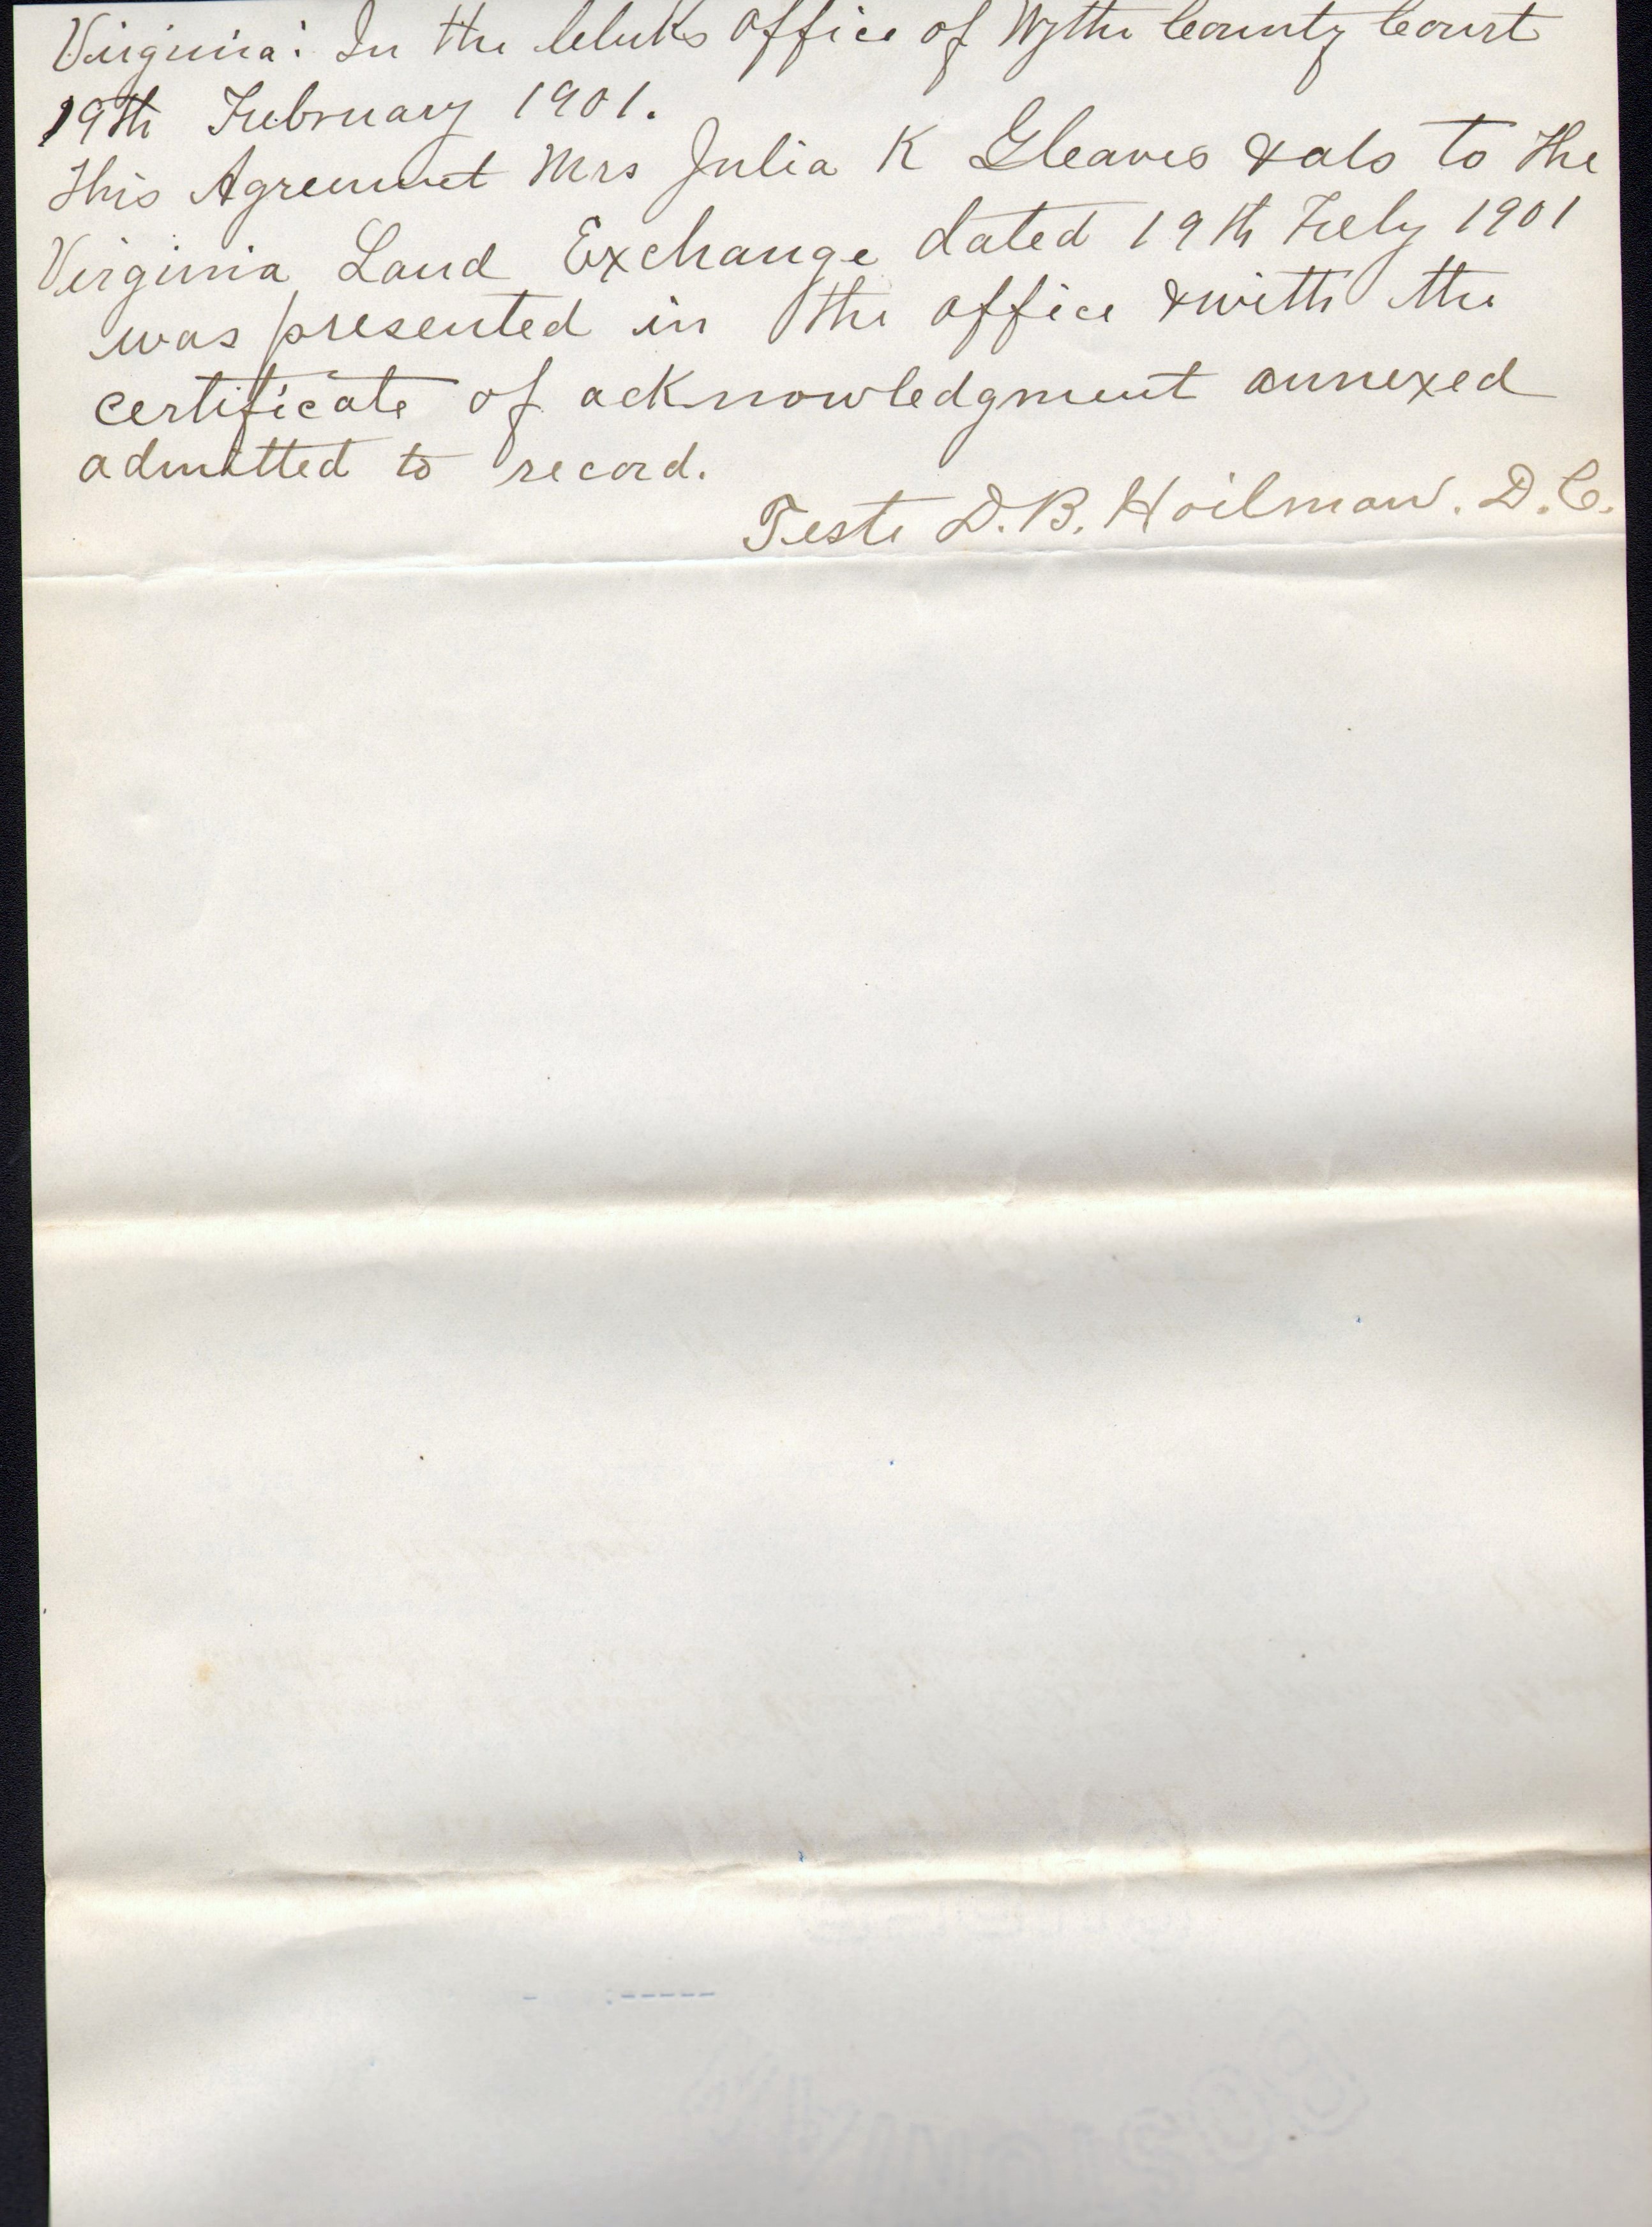 Virginia: In the Clerks office of Wythe County Court
19th February 1901.
This Agreement Mrs Julia K Gleaves &als to the
Virginia Land Exchange dated 19th Feby 1901
was presented in the office &with the
certificate of acknowledgment annexed
admitted to record.
Teste D.B. Hoilman. D.C.